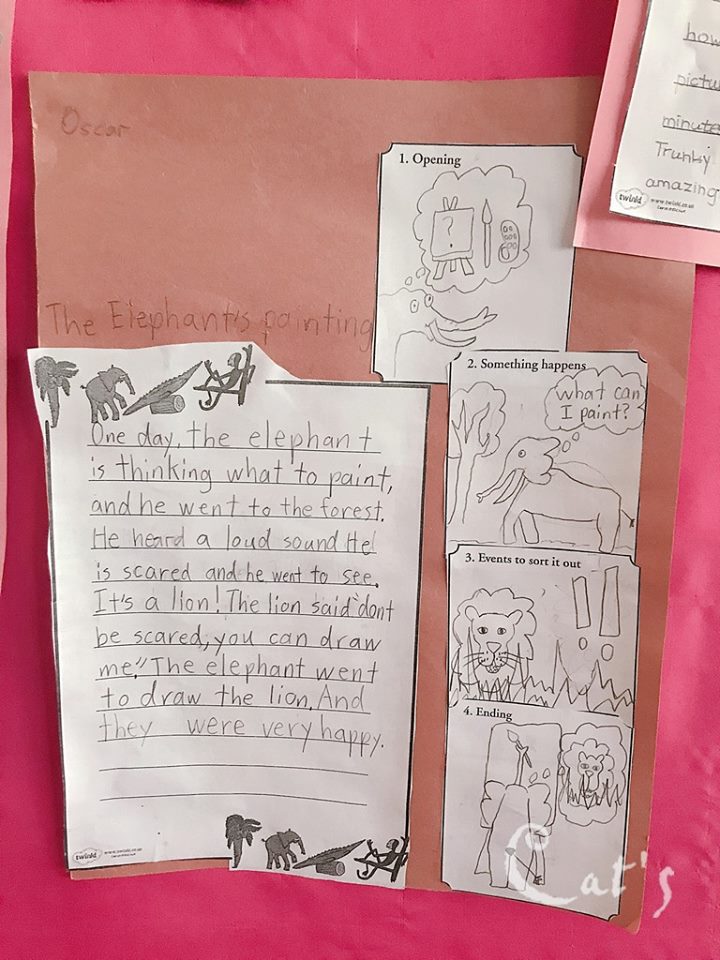 Oscar
The Elephant's painting
One day, the elephant
is thinking what to paint,
and he went to the forest.
He heard a loud sound He
is scared and he went to see.
It's a lion! The lion said "dont
be scared, you can draw
me." The elephant went
to draw the lion. And
they were very happy.
twinkl www.twinkl.co.uk
1. Opening
?
2. Something happens
what can
I paint?
3. Events to sort it out
4. Ending
how
pictu
minute
Trunky
amazing
twinkl www.twinkl.co.uk
Cat's